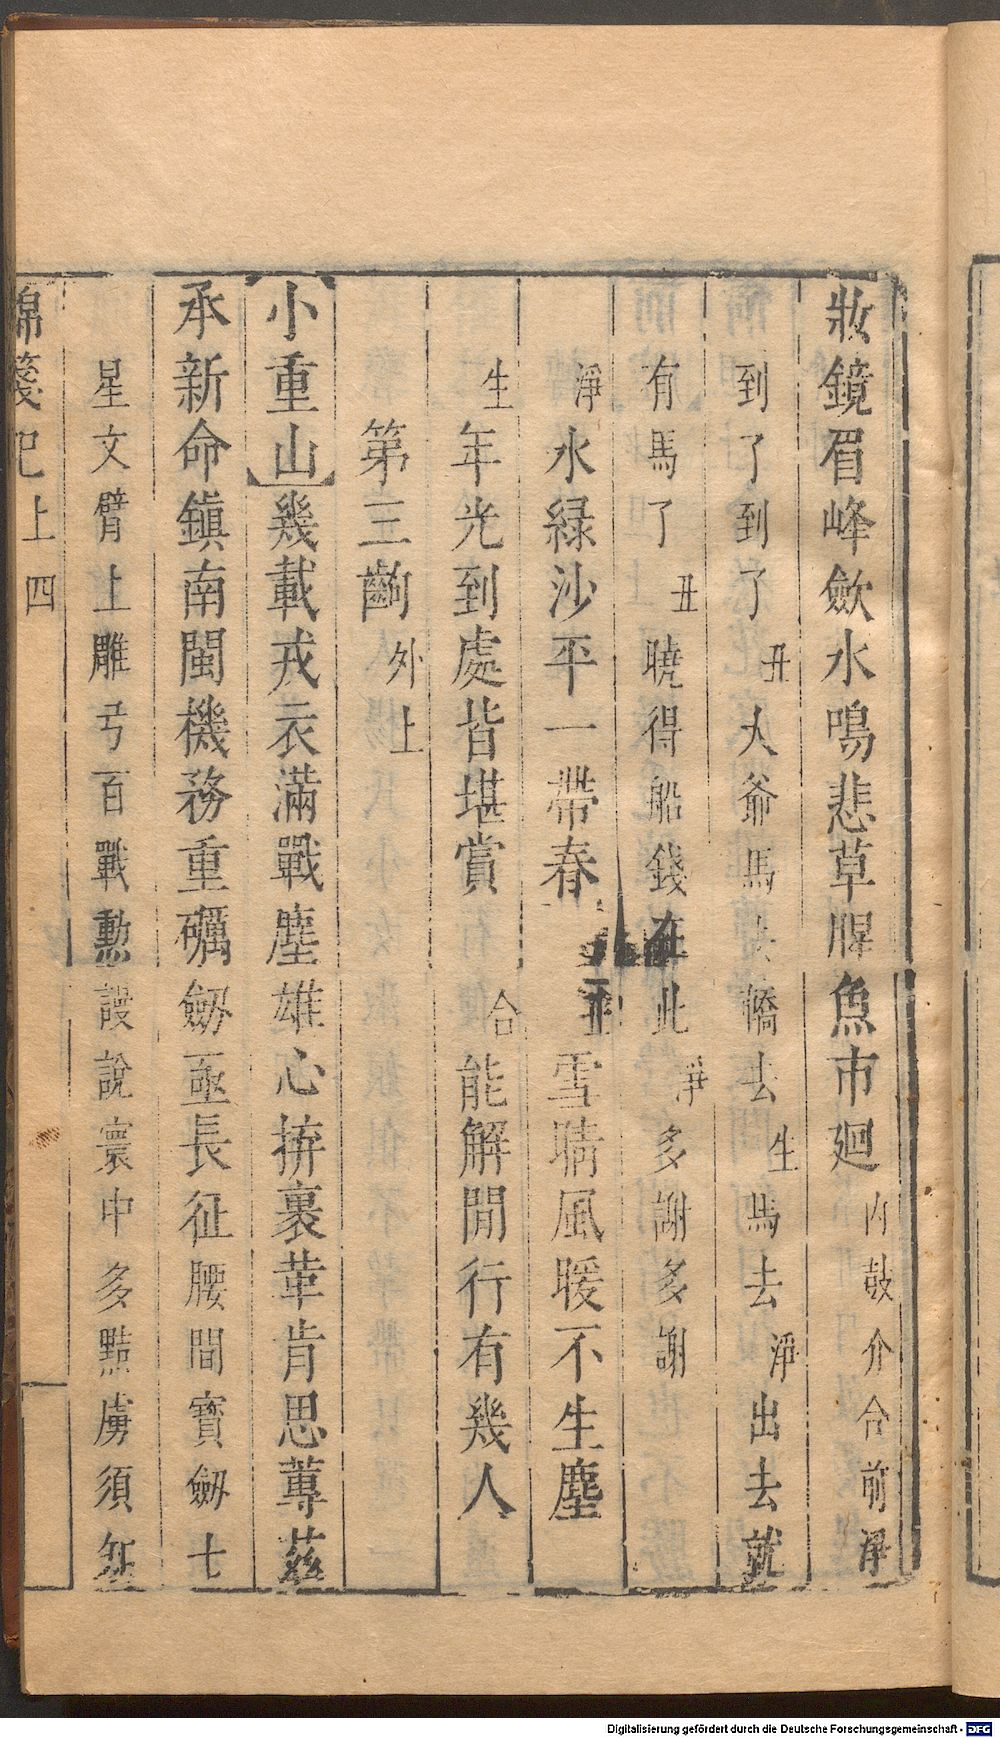 妝鏡眉峰歛水鳴悲草腥魚市廻內鼓介合前淨
到了到了丑大爺馬去轎去生馬去淨出去就
有馬了丑曉得船錢在此淨多謝多謝
淨水綠沙平一帶春丑雪晴風暖不生塵
生年光到處皆堪賞合能解閒行有幾人
第三齣外上
小重山幾載戎衣滿戰塵雄心拚裹革肯思蓴茲
承新命鎮南閩機務重礪劔亟長征腰間寶劔七
星文臂上雕弓百戰勳謾說寰中多黠虜須無
錦箋記上 四
Digitalisierung gefördert durch die Deutsche Forschungsgemeinschaft - DFG